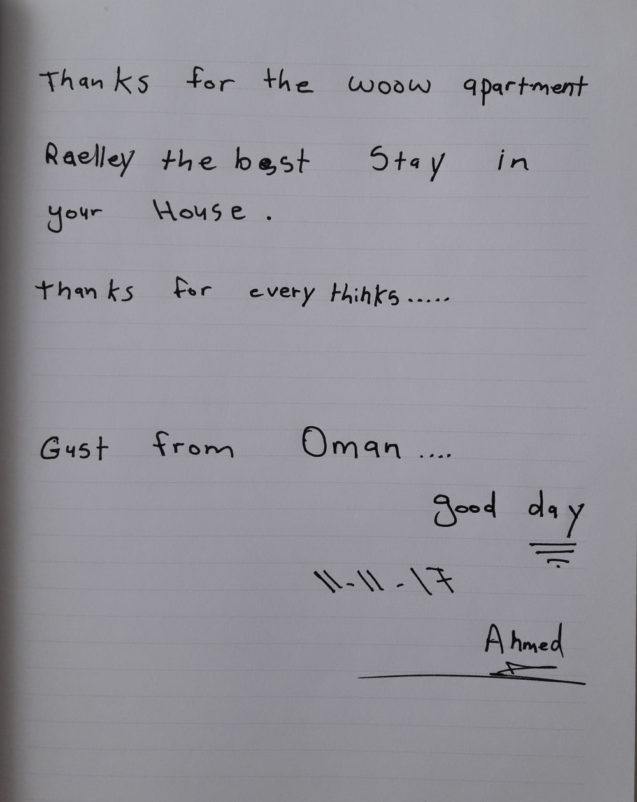 Thanks for the woow apartment
Raelley the best Stay in
your House .
thanks for every thinks.....
Gust from Oman ....
good day
11-11-17
Ahmed